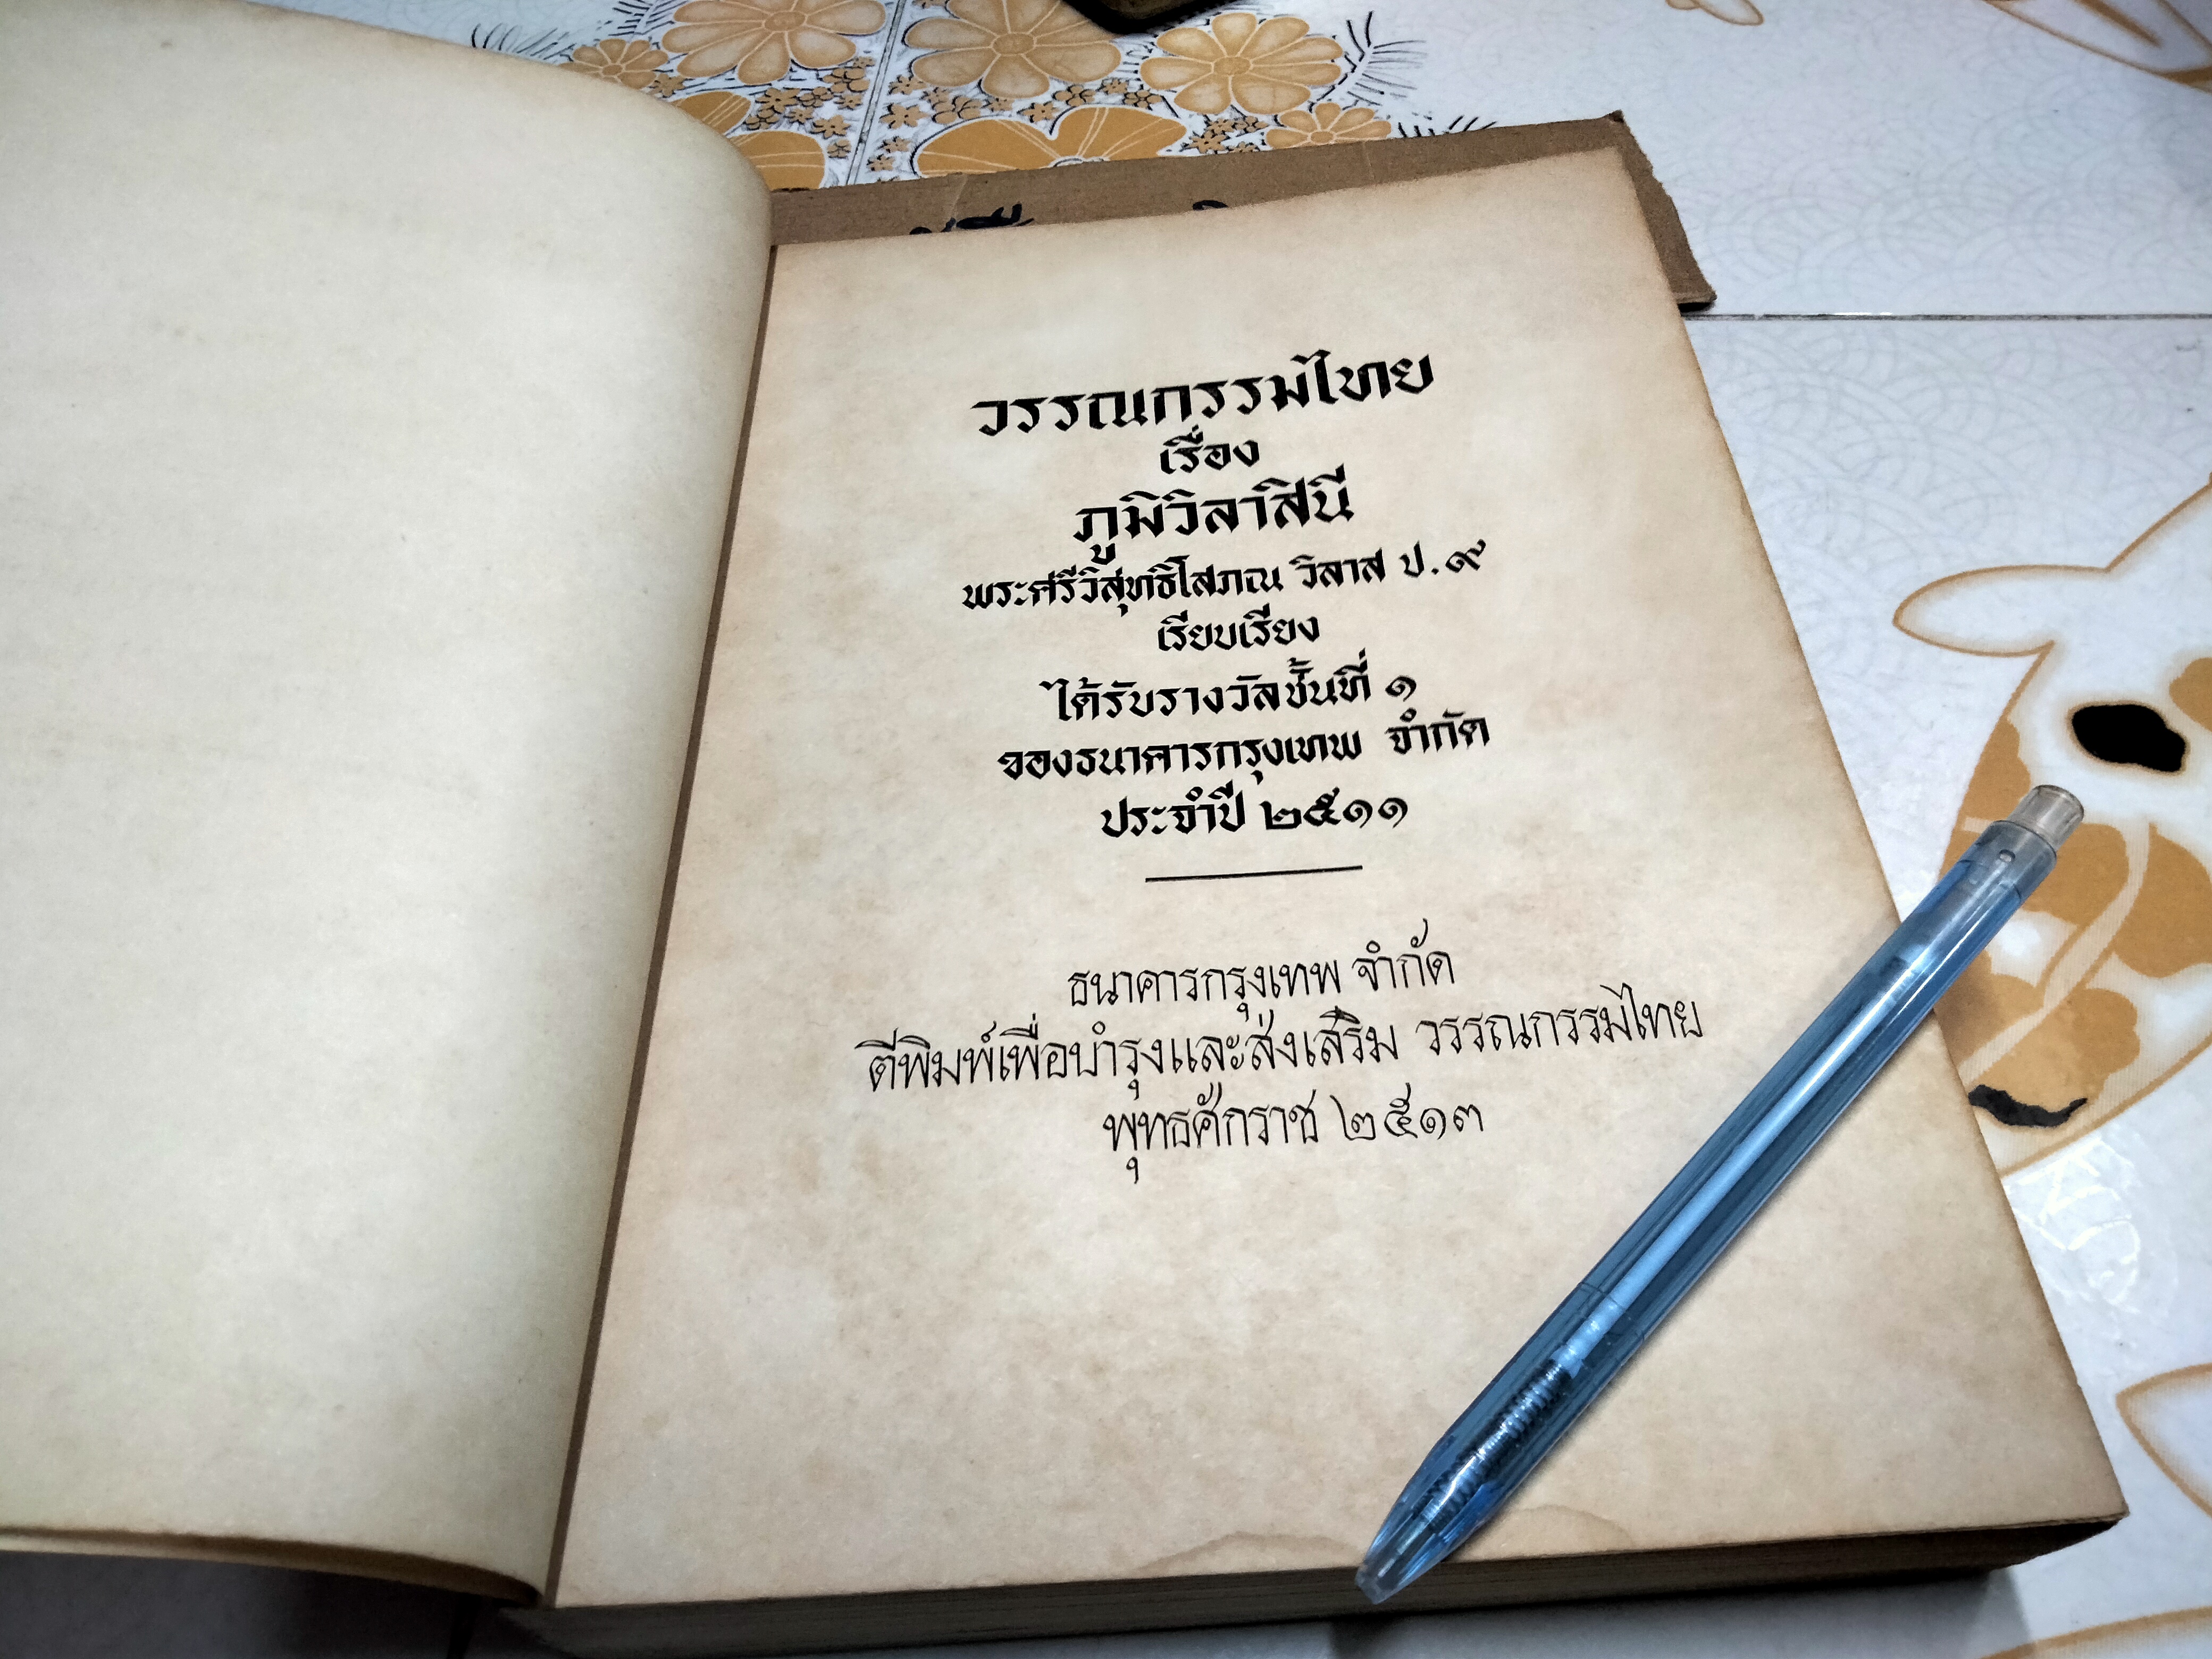 วรรณกรรมไทย
เรื่อง
ภูมิวิลาสินี
พระศรีวิสุทธิโสภณ วิลาส ป.๙
เรียบเรียง
ได้รับรางวัลชั้นที่ ๑
ของธนาคารกรุงเทพ จำกัด
ประจำปี ๒๕๑๑
ธนาคารกรุงเทพ จำกัด
ตีพิมพ์เพื่อบำรุงและส่งเสริม วรรณกรรมไทย
พุทธศักราช ๒๕๑๓